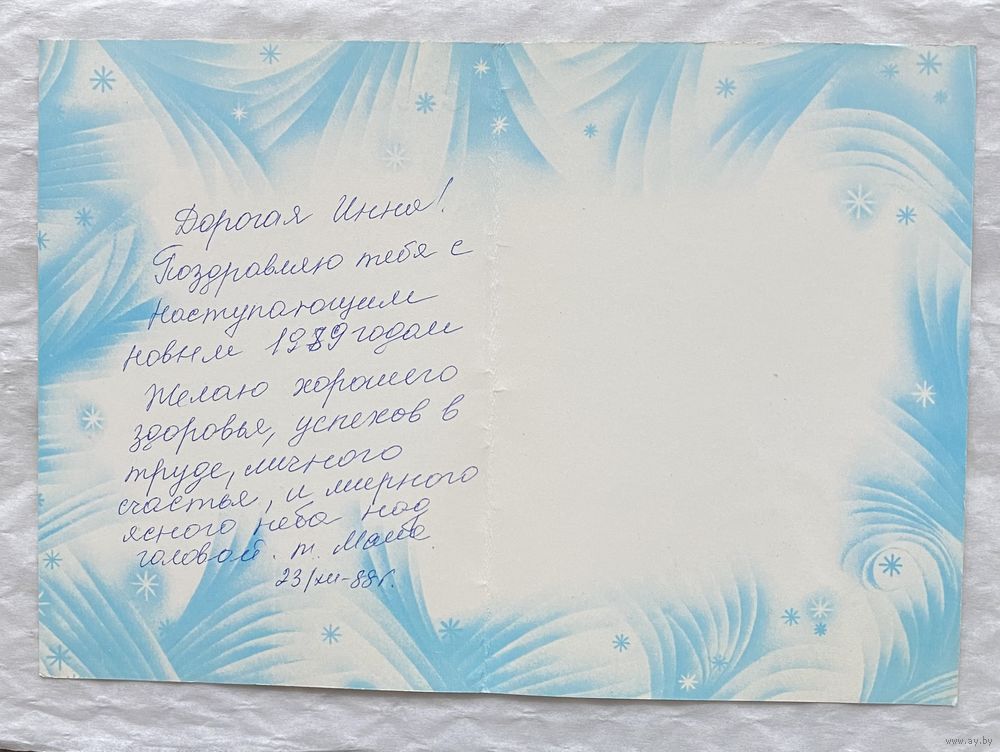 Дорогая Инна!
Поздравляю тебя с
наступающим
новым 1989 годом
Желаю хорошего
здоровья, успехов в
труде, личного
счастья, и мирного
ясного неба над
головой. т.
23/XII-88г.
www.ay.by